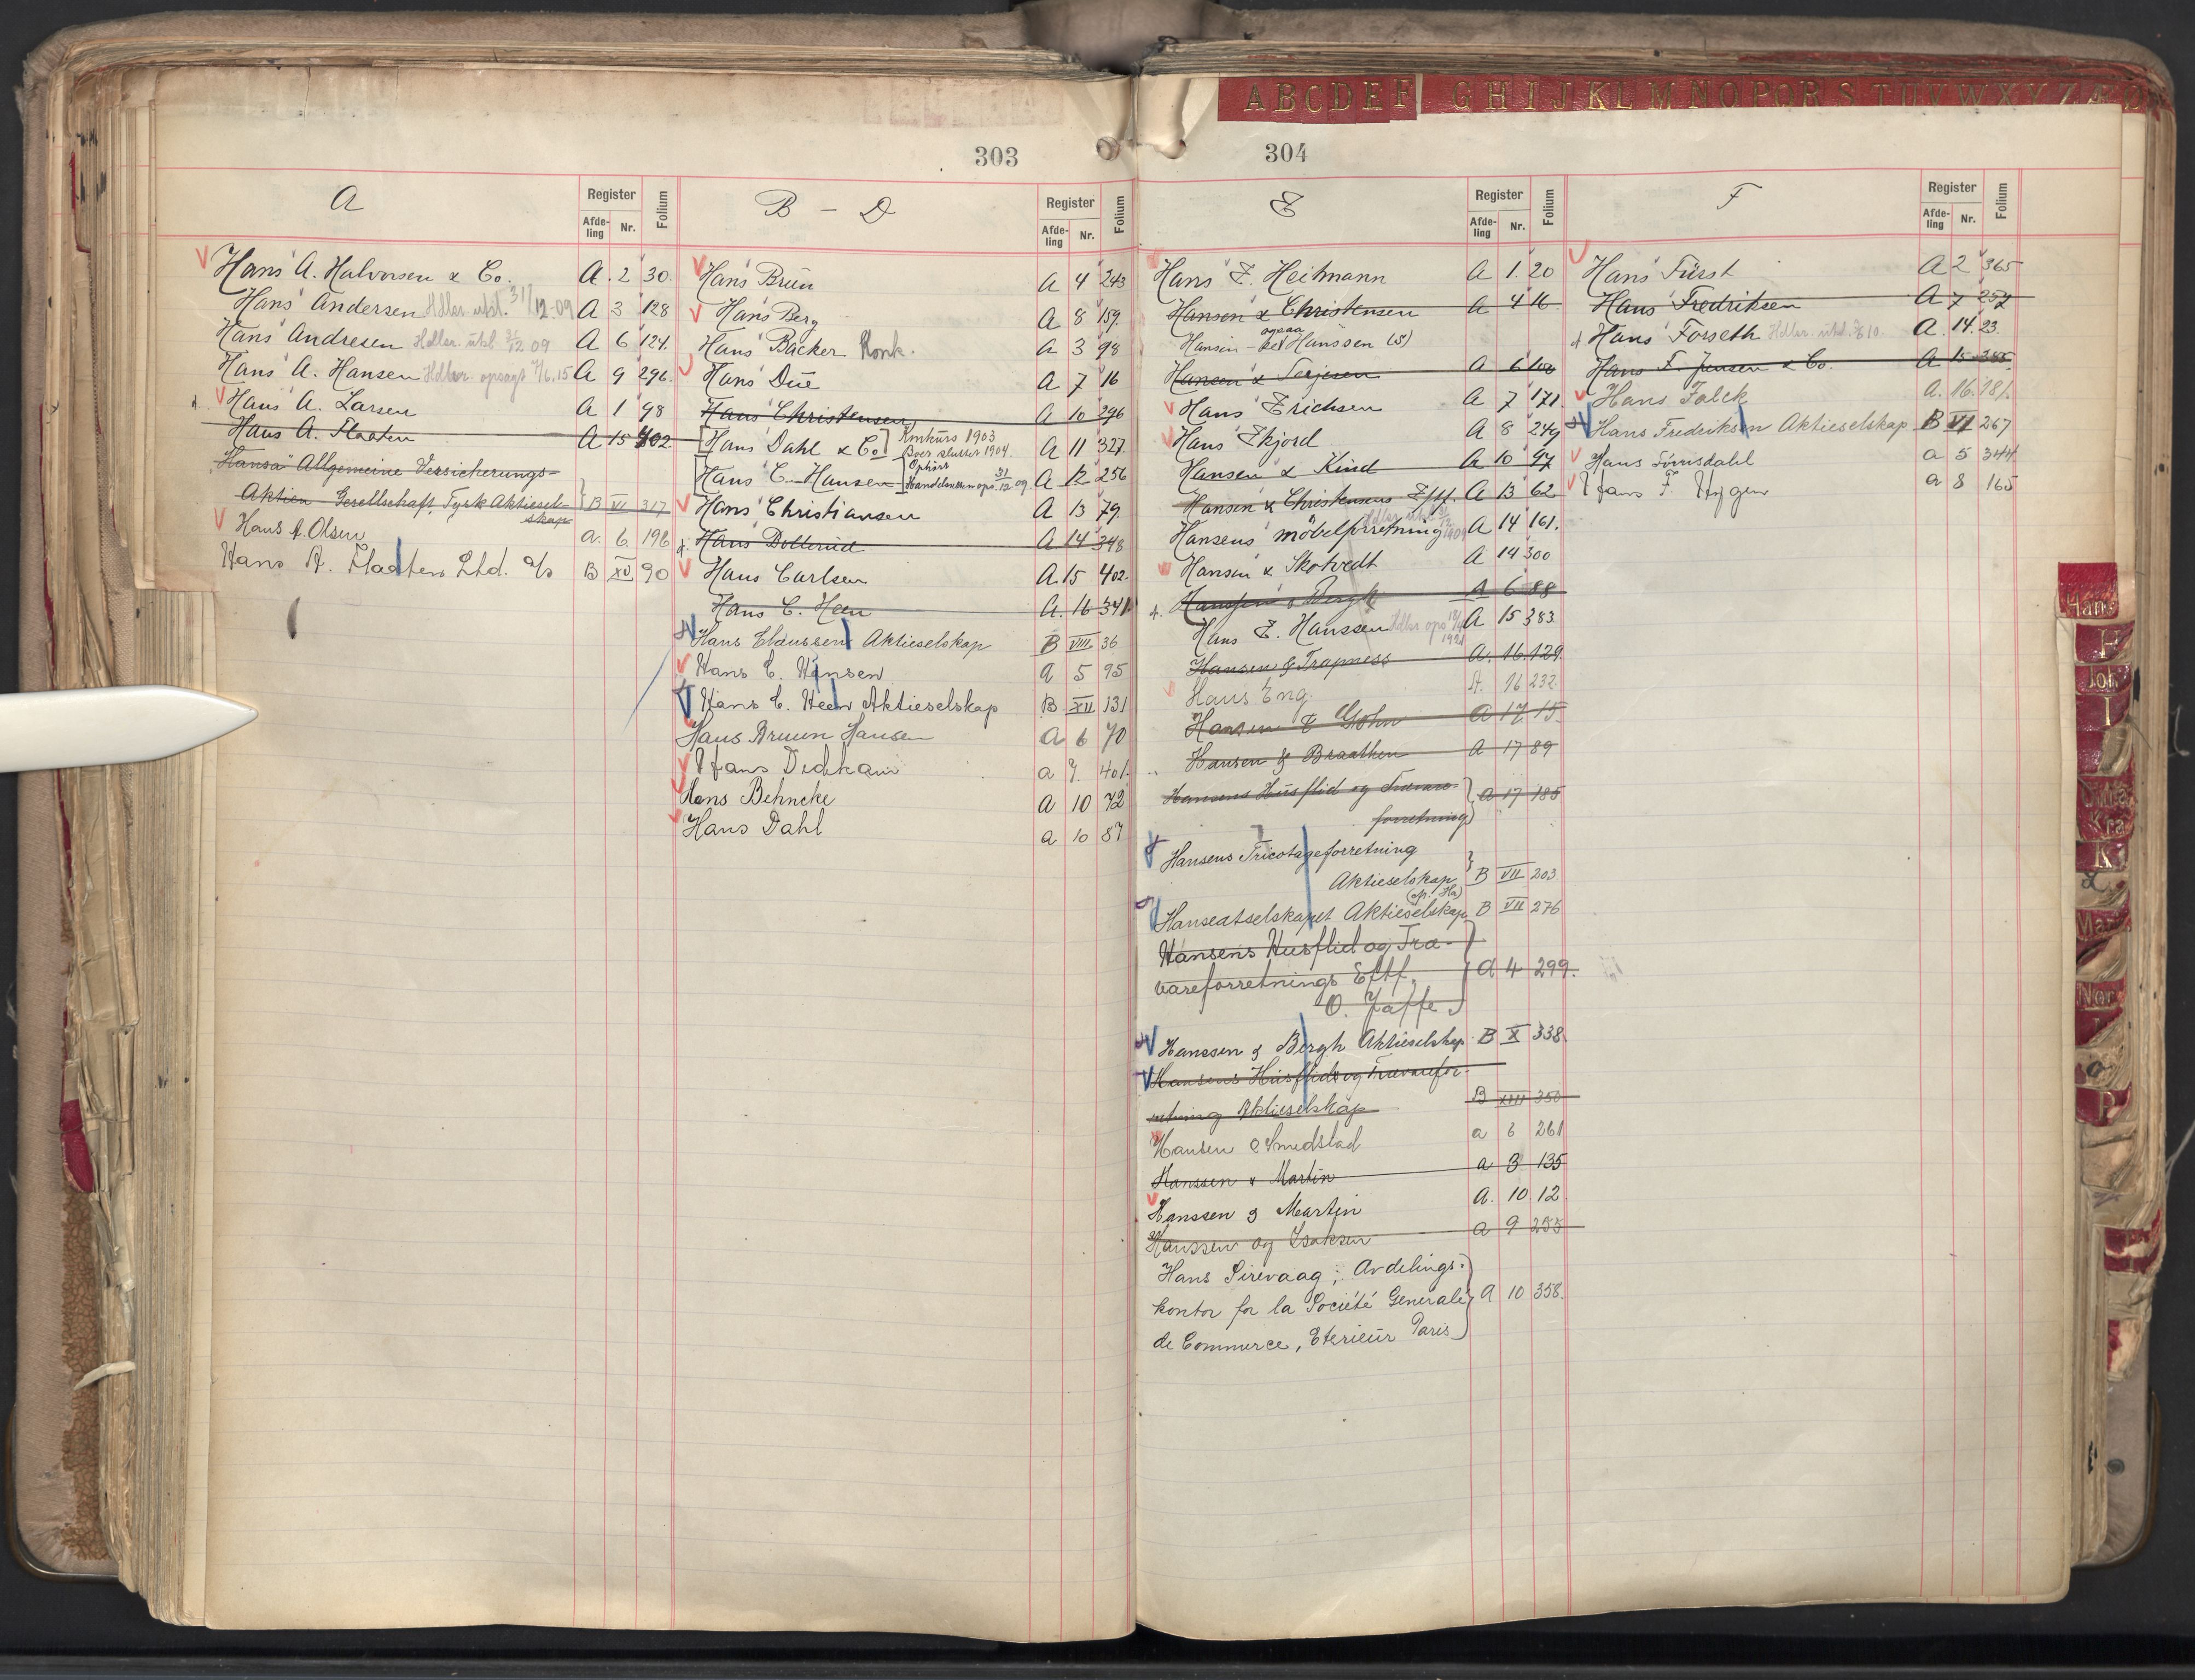 A B C D E F G H I J K L M N O P Q R S T U V W X Y Z Æ Ø
303
A
Register
Afde-
ling
Nr.
Folium
Hans A. Halvorsen & Co. A. 2 30.
Hans Andersen Hdler. utsl. 31/12.09 A 3 128
Hans Andresen Hdler. utsl. 31/12 09 A 6 124.
Hans A. Hansen Hdler. opsagt 7/6.15 A 9 296.
Hans A. Larsen A 1 98
Hans A. Flaaten A 15 402
"Hansa" Allgemeine Versicherungs-
Aktien-Gesellschaft, Tysk Aktiesel-
skap B VI 317
Hans A. Olsen a. 6 196
Hans A. Flaaten Ltd. A/s B XV 90
B - D
Register
Afde-
ling
Nr.
Folium
Hans Brun A 4 243
Hans Berg A 8 159.
Hans Bäcker Konk. A 3 98
Hans Due A 7 16
Hans Christensen A 10 296
[Hans Dahl & Co] Konkurs 1903
Boet sluttet 1904. A 11 327.
[Hans C. Hansen] Ophørt
Handelsnæringen ops. 31/12 09. A 12 256
Hans Christiansen A 13 79
Hans Dollerud A 14 348
Hans Carlsen A. 15 402.
Hans C. Heen A. 16 341
Hans Claussen Aktieselskap B VIII 36
Hans C. Hansen a 5 95
Hans C. Heen Aktieselskap B XII 131
Hans Bruun Hansen a 6 70
Hans Dedekam a 7. 401.
Hans Behncke a 10 72
Hans Dahl a 10 87
304
E
Register
Afde-
ling
Nr.
Folium
Hans E. Heitmann A 1. 20
Hansen & Christensen A 4 16.
ogsaa
Hansen - se Hanssen (s)
Hansen & Terjesen A 6
Hans Erichsen A 7 171.
Hans Ekjord A 8 249
Hansen & Kind A 10 97
Hansen & Christensens Eftf. A 13 62
Hansens møbelforretning A 14 161.
Hansen & Skotvedt A 14 300
Hanssen & Bergh A 6 88
Hans E. Hanssen Hdler ops. 1921 A 15 383
Hansen & Trapness A. 16. 129.
Hans Eng. A. 16 232
Hansen & Gohn A 17 15.
Hansen & Braathen A 17 89
Hansens Husflid og Trævare-
forretning A 17 185
Hansens Tricotageforretning
Aktieselskap B VII 203
(op. Ha)
Hanseatselskapet Aktieselskap B VII 276
Hansens Husflid og Træ-
vareforretnings Eftf.
O. Jaffe. a 4 299.
Hanssen & Bergh Aktieselskap B X 338.
Hansens Husflids og Trævarefor-
retning Aktieselskap B XIII 350
Hansen & Smedstad a 6 261
Hanssen & Martin a 8 135
Hanssen & Martin a. 10. 12
Hanssen og Isaksen a 9 255
Hans Sirevaag; Avdelings-
kontor for la Société Generale
de Commerce, Eterieür Paris a 10 358.
F
Register
Afde-
ling
Nr.
Folium
Hans Fürst A 2 365
Hans Fredriksen A 7 257
Hans Forseth Hdler. utsl. 10. A. 14. 23.
Hans F. Jensen & Co. A 15 385.
Hans Falck A. 16. 181.
Hans Fredriksen Aktieselskap B VI 267
Hans Förrisdahl a 5 344
Hans F. Hygen a 8 165
Hans
H
Joh
I
Kra
K
L
Mar
Nor
O
P